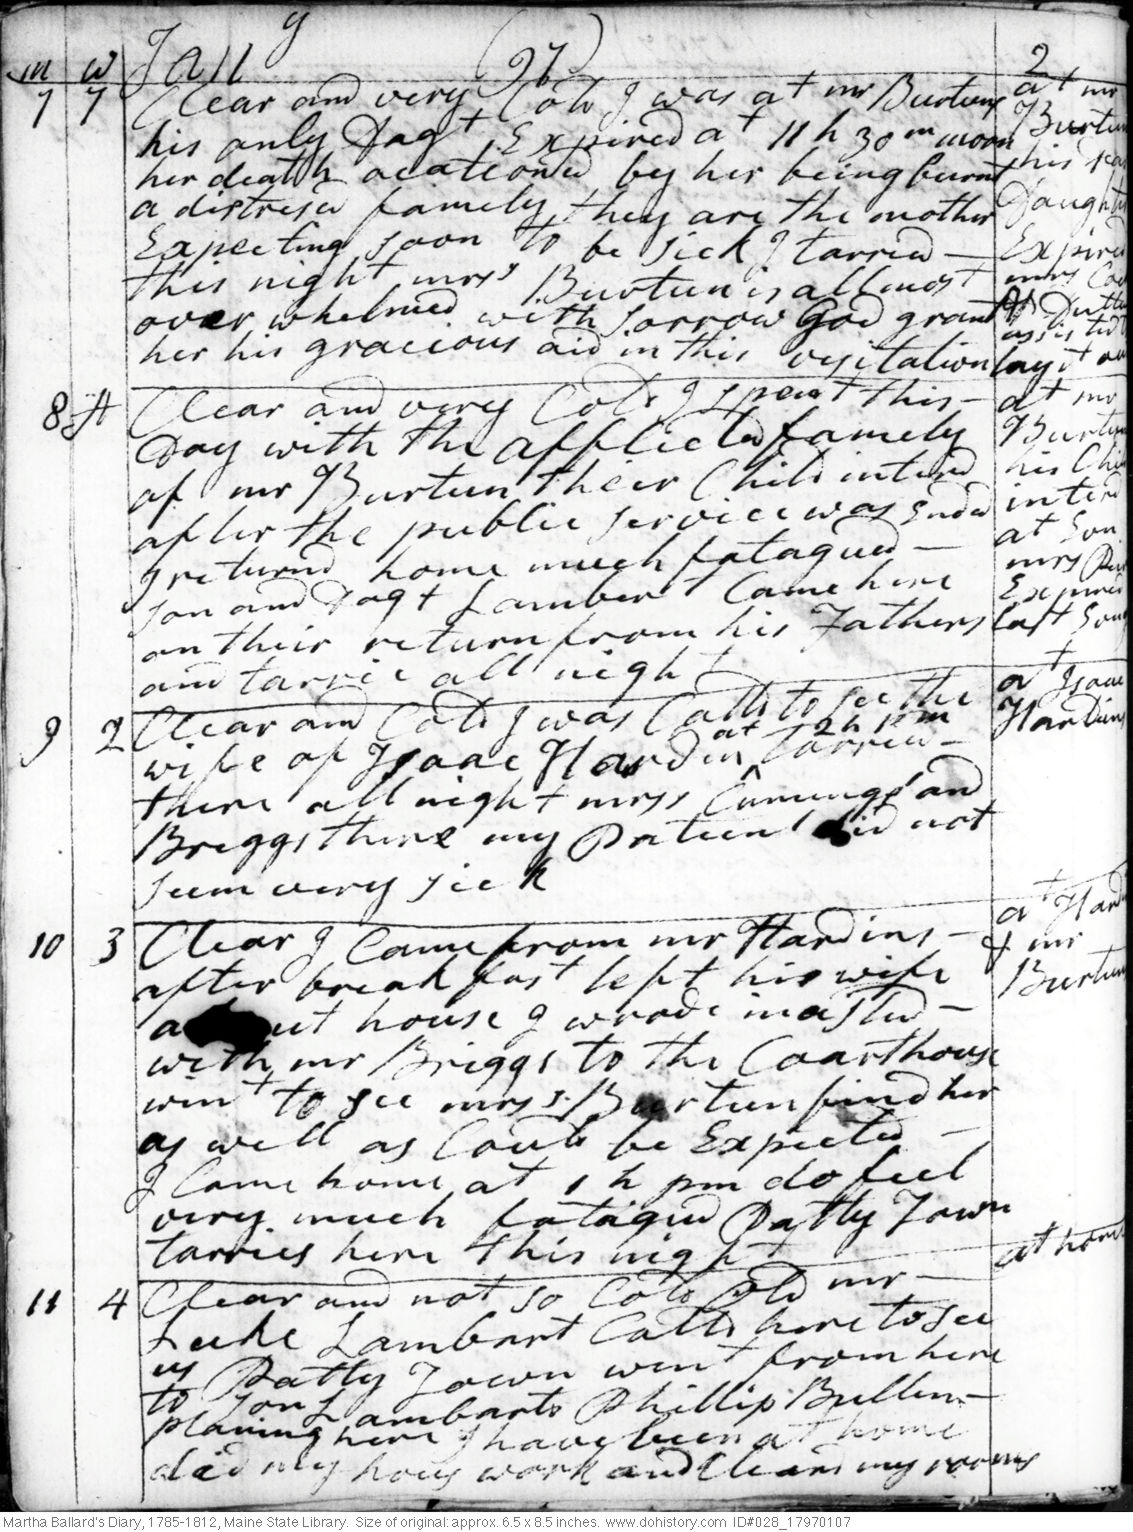 m w Jany (97) 2
7 7 Clear and very Cold I was at mr Burtuns
his only Dagt Expired at 11 h 30 m moon
her death ocationed by her being burnt
a distresd famely they are the mother
Expecting soon to be sick I tarred —
this night mrss Burtun is allmost
over whelmed with sorrow God grant
her his gracious aid in this vesitation
at mr
Burtun
his
Daught
Expired
mrs
assisted
lay it out
8 Clear and very Cold I spent this —
Day with the afflicted famely
of mr Burtun their Child intered
after the public service was Ended
I returnd home much fatagued —
son and Dagt Lambert Came here
on their return from his Fathers
and tarrie all night
at mr
Burtun
his Chi
interd
at Son
mrs
Expired
last
9 2 Clear and Cold I was Calld to see the
wife of Isaac Hardin at 2 h pm tarried —
there all night mrss Cumings and
Briggs there my Patient did not
seem very sick
at Isaac
Hardins
10 3 Clear I Came from mr Hardins —
after break fast left his wife
about house I wrode in a sled —
with mr Briggs to the Coarthouse
wint to see mrss Burtun find her
as well as Could be Expected —
I Came home at 1 h pm do feel
very much fatagud Patty Town
tarries here this night
at Hardi
& mr
Burtun
11 4 Clear and not so Cold Old mr —
Luke Lambart Calld here to see
us Patty Town wint from here
to son Lambarts Phillip Bullin —
planing here I have been at home
did my hous work and Cleand my rooms
at home
Martha Ballard's Diary, 1785-1812, Maine State Library. Size of original: approx. 6.5 x 8.5 inches. www.dohistory.com ID#028_17970107